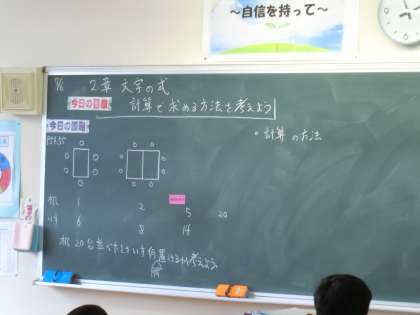 ～自信を持って～
7/6 2章 文字の式
今日の目標 計算で求める方法を考えよう
今日の課題
・計算の方法
机 1 2 5 20
いす 6 8 14
机20台並べたときいす何脚置けるか考えよう